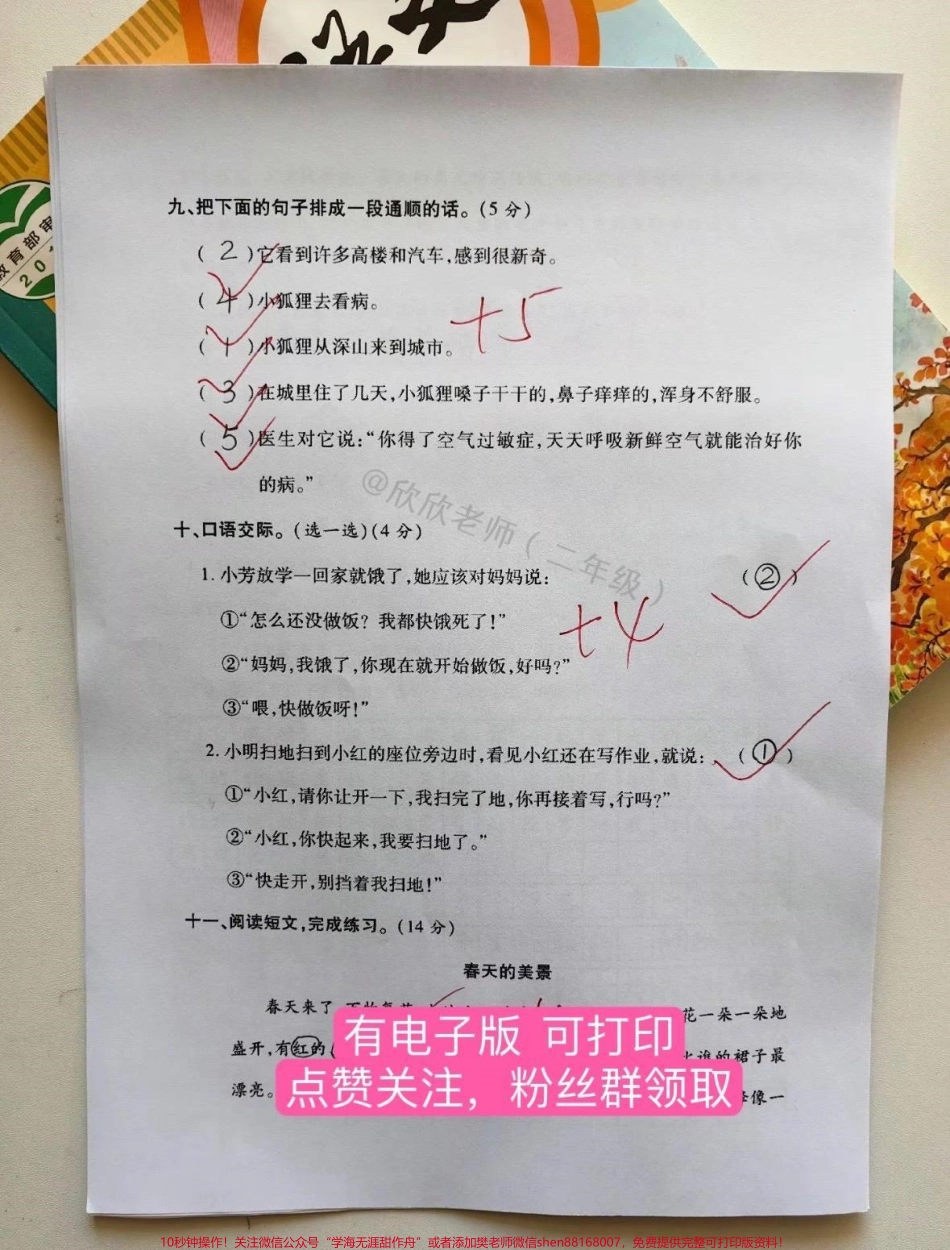 教育部审
20
九、把下面的句子排成一段通顺的话。(5分)
( 2 )它看到许多高楼和汽车,感到很新奇。
( 4 )小狐狸去看病。
+5
( 1 )小狐狸从深山来到城市。
( 3 )在城里住了几天,小狐狸嗓子干干的,鼻子痒痒的,浑身不舒服。
( 5 )医生对它说:“你得了空气过敏症,天天呼吸新鲜空气就能治好你
的病。”
@欣欣老师(二年级)
十、口语交际。(选一选)(4分)
1. 小芳放学一回家就饿了,她应该对妈妈说: (②)
①“怎么还没做饭? 我都快饿死了!”
+4
②“妈妈,我饿了,你现在就开始做饭,好吗?”
③“喂,快做饭呀!”
2. 小明扫地扫到小红的座位旁边时,看见小红还在写作业,就说: (①)
①“小红,请你让开一下,我扫完了地,你再接着写,行吗?”
②“小红,你快起来,我要扫地了。”
③“快走开,别挡着我扫地!”
十一、阅读短文,完成练习。(14分)
春天的美景
春天来了 花一朵一朵地
盛开,有红的 谁的裙子最
漂亮。 像一
有电子版 可打印
点赞关注，粉丝群领取
10秒钟操作！关注微信公众号“学海无涯甜作舟”或者添加樊老师微信shen88168007，免费提供完整可打印版资料！